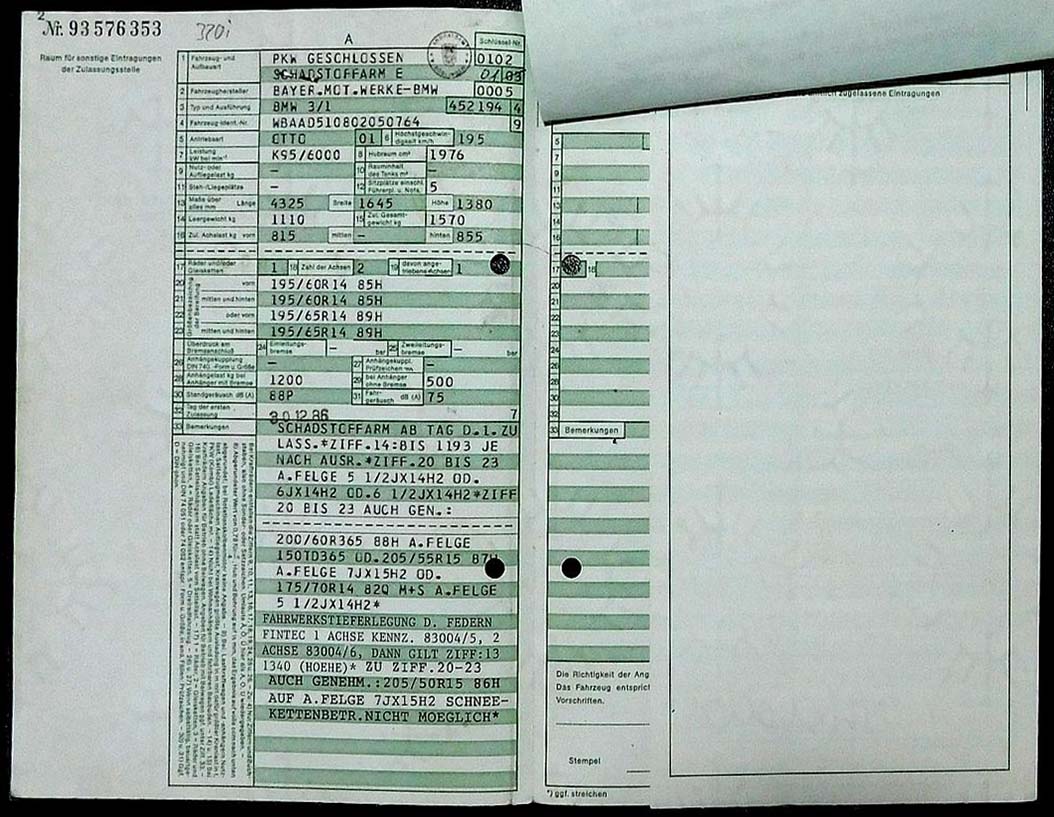 2
Nr. 93576353
320i
A
Raum für sonstige Eintragungen
der Zulassungsstelle
Schlüssel-Nr.
1 Fahrzeug- und Aufbauart PKW GESCHLOSSEN 0102
SCHADSTOFFARM E 01/03
2 Fahrzeughersteller BAYER.MOT.WERKE-BMW 0005
3 Typ und Ausführung BMW 3/1 452194 4
4 Fahrzeug-Ident.-Nr. WBAAD510802050764 9
5 Antriebsart OTTO 01 6 Höchstgeschwindigkeit km/h 195
7 Leistung kW bei min⁻¹ K95/6000 8 Hubraum cm³ 1976
9 Nutz- oder Aufliegelast kg – 10 Rauminhalt des Tanks m³ –
11 Steh-/Liegeplätze – 12 Sitzplätze einschl. Führerpl. u. Nots. 5
13 Maße über alles mm Länge 4325 Breite 1645 Höhe 1380
14 Leergewicht kg 1110 15 Zul. Gesamtgewicht kg 1570
16 Zul. Achslast kg vorn 815 mitten – hinten 855
17 Räder und/oder Gleisketten 1 18 Zahl der Achsen 2 19 davon angetriebene Achsen 1
20 vorn 195/60R14 85H
21 mitten und hinten 195/60R14 85H
22 oder vorn 195/65R14 89H
23 mitten und hinten 195/65R14 89H
Überdruck am Bremsanschluß 24 Einleitungsbremse – bar 25 Zweileitungsbremse – bar
26 Anhängekupplung DIN 740.. Form u. Größe – 27 Anhängekuppl. Prüfzeichen –
28 Anhängelast kg bei Anhänger mit Bremse 1200 29 bei Anhänger ohne Bremse 500
30 Standgeräusch dB (A) 88P 31 Fahrgeräusch dB (A) 75
32 Tag der ersten Zulassung 30.12.86 7
33 Bemerkungen SCHADSTOFFARM AB TAG D.1.ZU
LASS.*ZIFF.14:BIS 1193 JE
NACH AUSR.*ZIFF.20 BIS 23
A.FELGE 5 1/2JX14H2 OD.
6JX14H2 OD.6 1/2JX14H2*ZIFF
20 BIS 23 AUCH GEN.:
200/60R365 88H A.FELGE
150TD365 OD.205/55R15 87H
A.FELGE 7JX15H2 OD.
175/70R14 82Q M+S A.FELGE
5 1/2JX14H2*
FAHRWERKSTIEFERLEGUNG D. FEDERN
FINTEC 1 ACHSE KENNZ. 83004/5, 2
ACHSE 83004/6, DANN GILT ZIFF:13
1340 (HOEHE)* ZU ZIFF.20-23
AUCH GENEHM.:205/50R15 86H
AUF A.FELGE 7JX15H2 SCHNEE-
KETTENBETR.NICHT MOEGLICH*
zugelassene Eintragungen
5
7
9
11
13
14
16
17 18
20
21
22
23
24
26
28
30
32
33 Bemerkungen
Die Richtigkeit der Ang
Das Fahrzeug entspric
Vorschriften.
Stempel
*) ggf. streichen